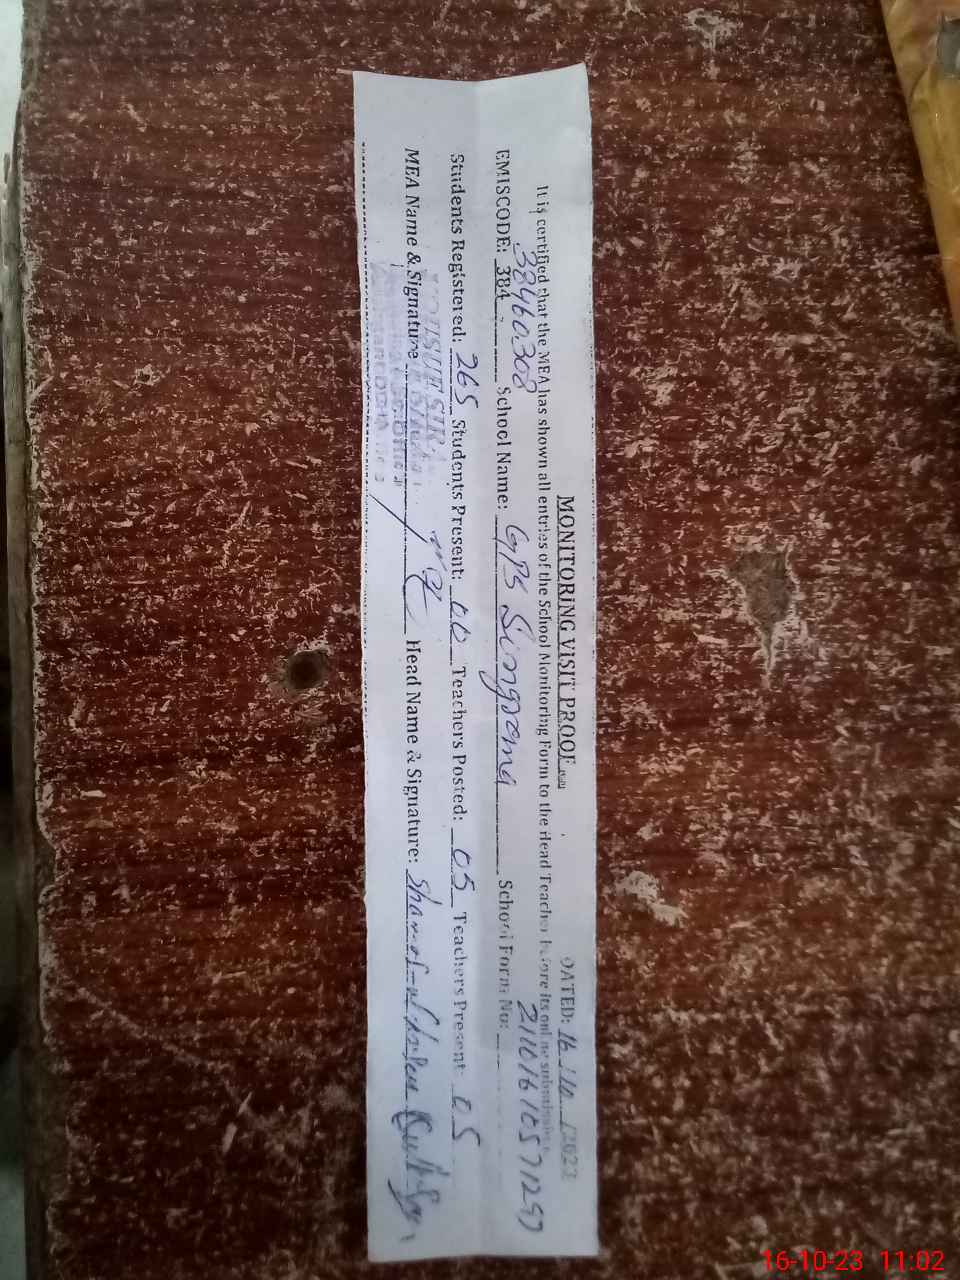 MONITORING VISIT PROOF
DATED: 16 / 10 /2023
It is certified that the MEA has shown all entries of the School Monitoring Form to the Head Teacher before its online submission.
38460308 2110161057
EMISCODE: 384 School Name: GPS Singrama School Form No:
Students Registered: 265 Students Present: 00 Teachers Posted: 05 Teachers Present: 05
MEA Name & Signature Head Name & Signature:
16-10-23 11:02